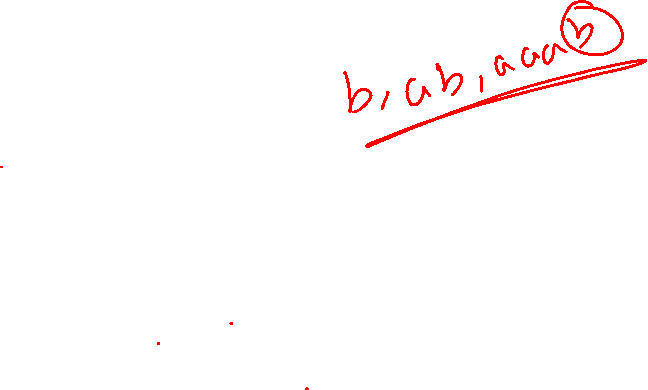 b, ab, aaab